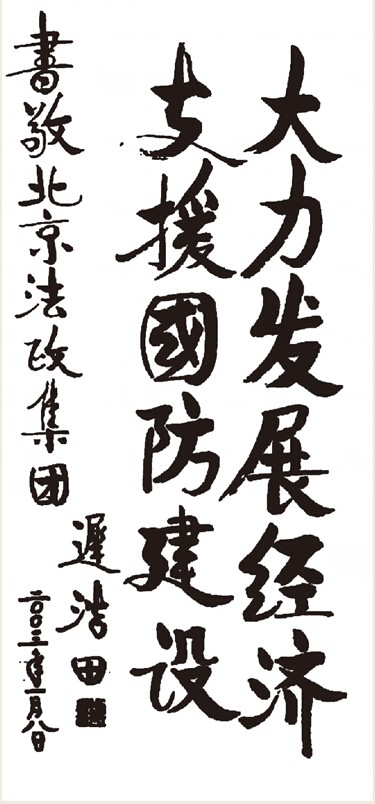 大力发展经济
支援國防建设
書敬北京法政集团
遲浩田
二〇〇三年一月八日